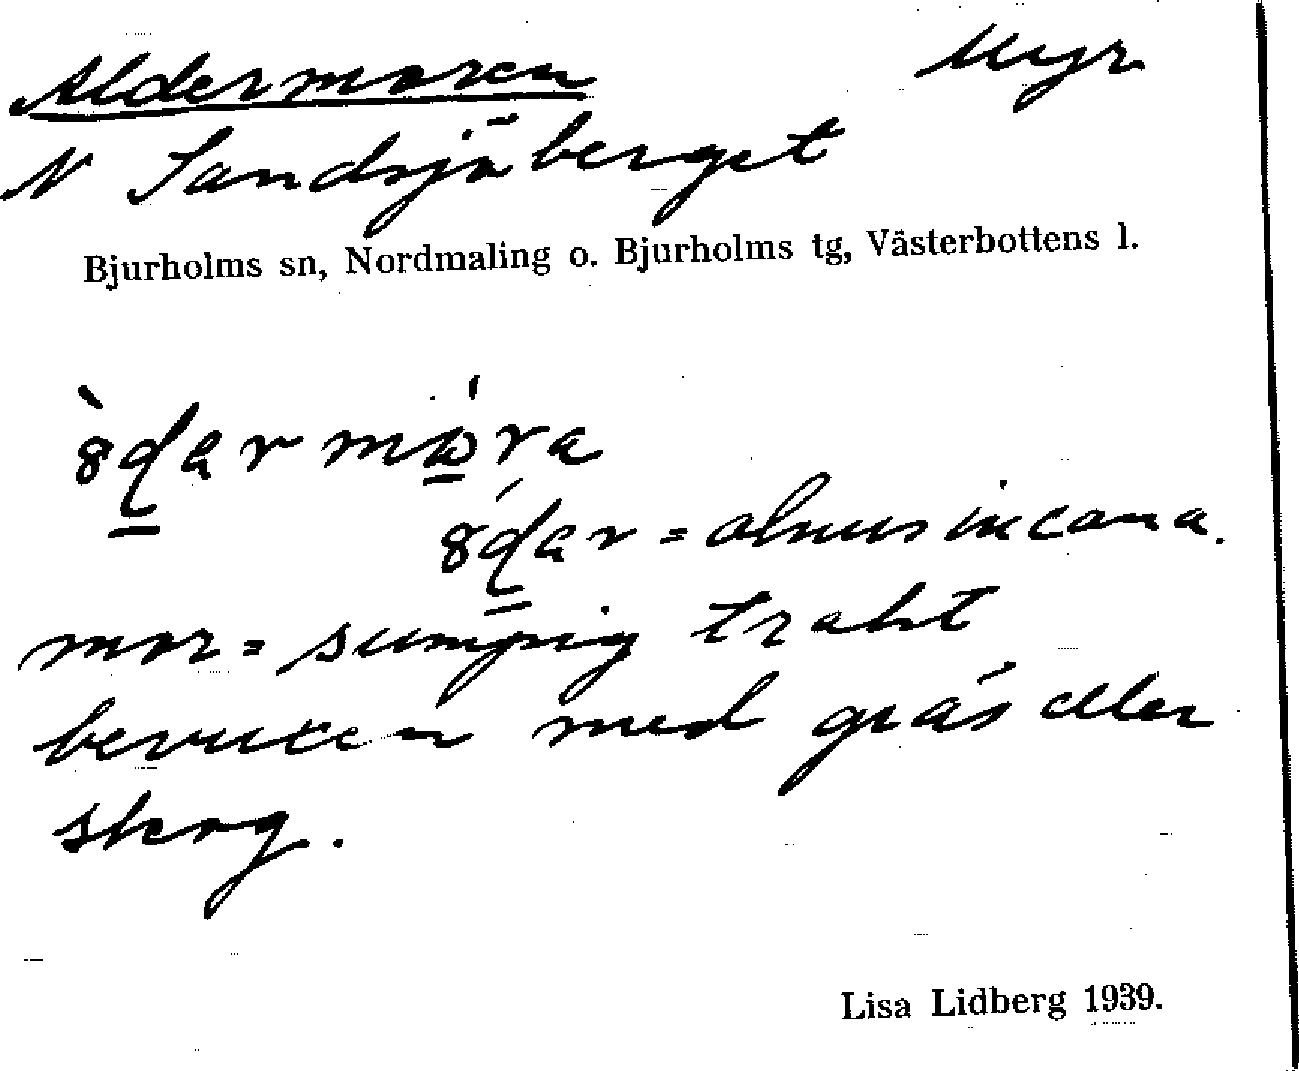 Aldermoren Myr
N Sandsjöberget
Bjurholms sn, Nordmaling o. Bjurholms tg, Västerbottens l.
= alnus incana.
mor = sumpig trakt
bevuxen med gräs eller
skog.
Lisa Lidberg 1939.